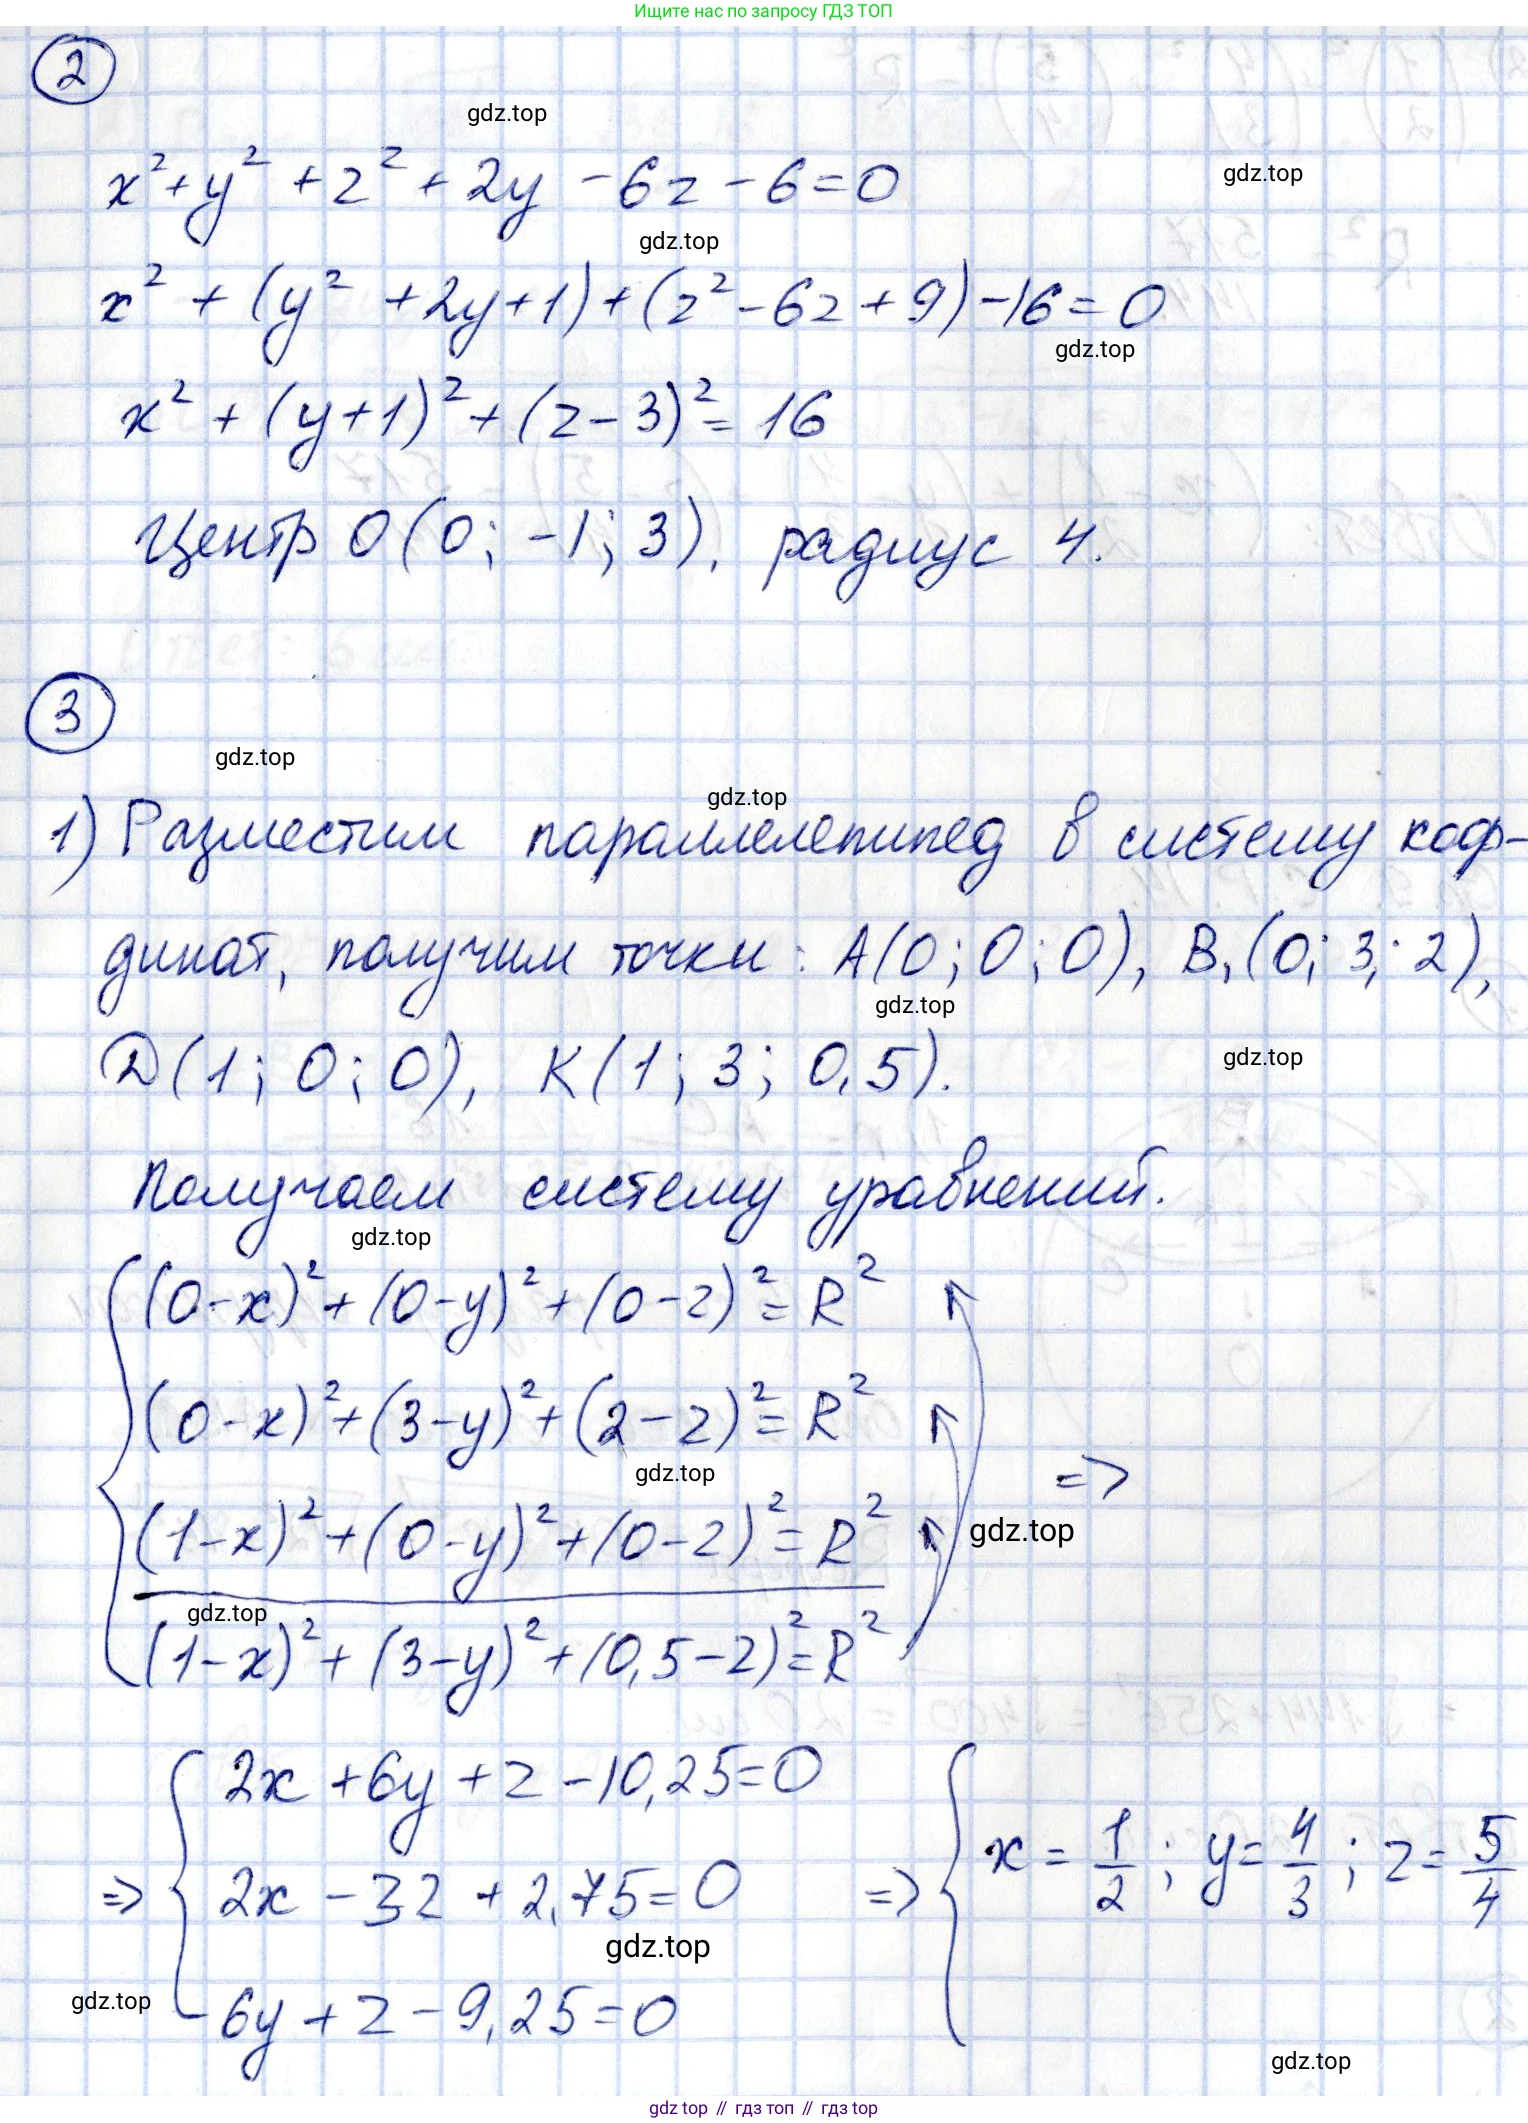 Ищите нас по запросу ГДЗ ТОП
2
gdz.top
x² + y² + z² + 2y - 6z - 6 = 0
gdz.top
gdz.top
x² + (y² + 2y + 1) + (z² - 6z + 9) - 16 = 0
gdz.top
x² + (y + 1)² + (z - 3)² = 16
Центр O(0; -1; 3), радиус 4.
3
gdz.top
gdz.top
1) Разместим параллелепипед в систему коор-
динат, получим точки: A(0; 0; 0), B₁(0; 3; 2),
gdz.top
D(1; 0; 0), K(1; 3; 0,5).
gdz.top
Получаем систему уравнений.
gdz.top
(0 - x)² + (0 - y)² + (0 - z)² = R²
(0 - x)² + (3 - y)² + (2 - z)² = R²
gdz.top
=>
(1 - x)² + (0 - y)² + (0 - z)² = R²
gdz.top
gdz.top
(1 - x)² + (3 - y)² + (0,5 - z)² = R²
2x + 6y + z - 10,25 = 0
=> 2x - 3z + 2,75 = 0 => x = 1/2; y = 4/3; z = 5/4
gdz.top
gdz.top
6y + z - 9,25 = 0
gdz.top
gdz top // гдз топ // gdz top